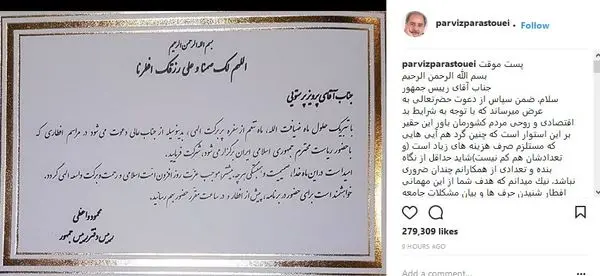 بسم الله الرحمن الرحیم
اللهم لک صمنا و علی رزقک افطرنا
جناب آقای پرویز پرستویی
با تبریک حلول ماه ضیافت الله، ماه تنعم از سفره پر برکت الهی، بدینوسیله از جناب عالی دعوت می شود در مراسم افطاری که
با حضور ریاست محترم جمهوری اسلامی ایران برگزار می شود، شرکت فرمایید.
امید است در این ماه خدا، صمیمیت و همبستگی هر چه بیشتر، موجب عزت روز افزون امت اسلامی و رحمت و برکت واسعه الهی گردد.
خواهشمند است برای حضور در برنامه، پیش از افطار و در ساعت مقرر حضور بهم رسانید.
محمود واعظی
رییس دفتر رییس جمهور
parvizparastouei • Follow
parvizparastouei پست موقت
بسم الله الرحمن الرحیم
جناب آقای رییس جمهور
سلام. ضمن سپاس از دعوت حضرتعالی به
عرض میرساند که با توجه به شرایط بد
اقتصادی و روحی مردم کشورمان باور این حقیر
بر این استوار است که چنین گرد هم آیی هایی
که مستلزم صرف هزینه های زیاد است (و
تعدادشان هم کم نیست)شاید حداقل از نگاه
بنده و تعدادی از همکارانم چندان ضروری
نباشد. نیک میدانم که هدف شما از این مهمانی
افطار شنیدن حرف ها و بیان مشکلات جامعه
279,309 likes
HOURS AGO
Add a comment...